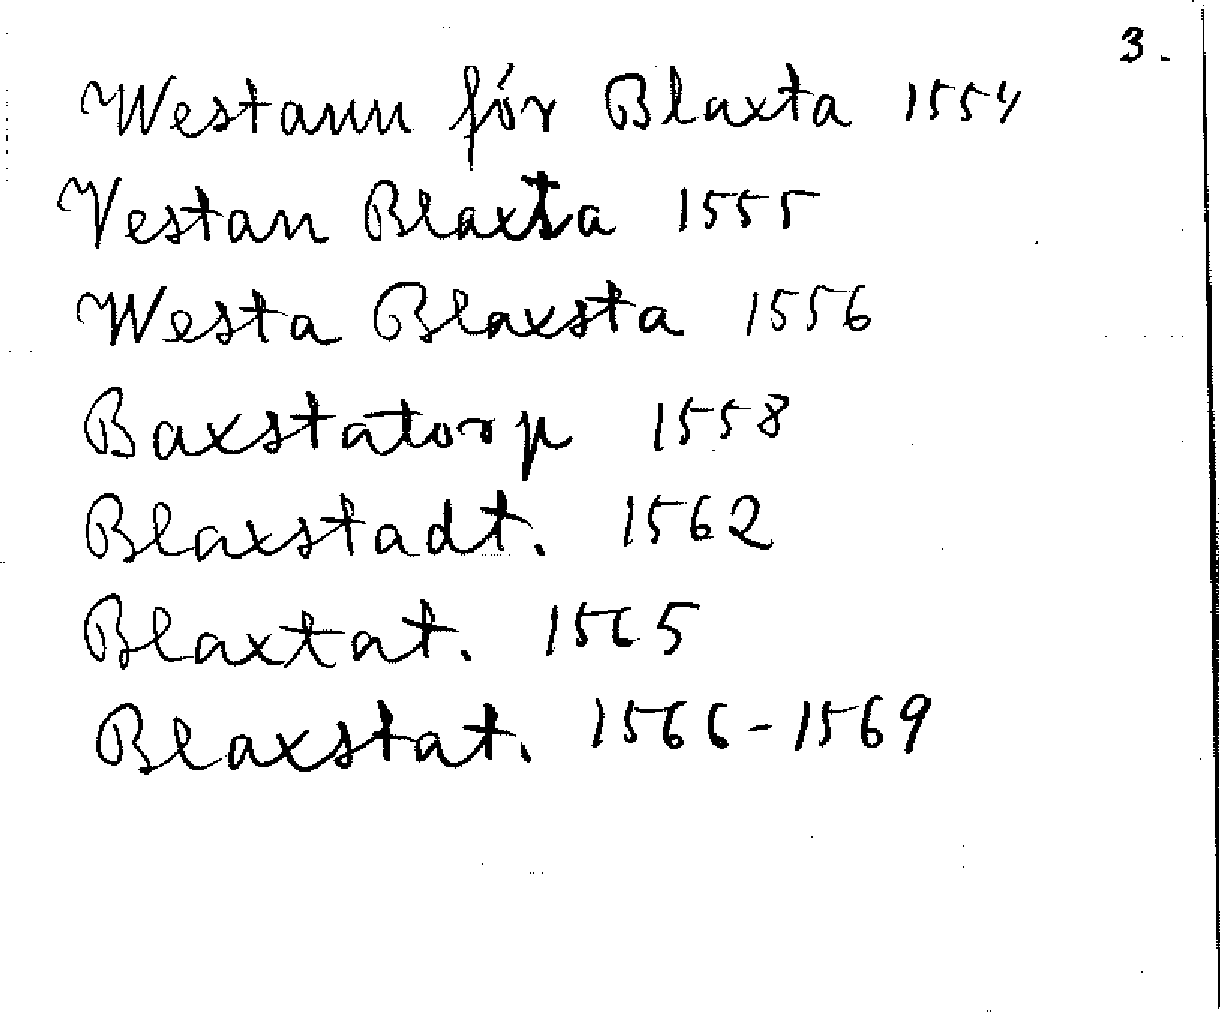 3.
Westann för Blaxta 1554
Vestan Blaxta 1555
Westa Blaxsta 1556
Baxstatorp 1558
Blaxstadt. 1562
Blaxtat. 1565
Blaxstat. 1566-1569